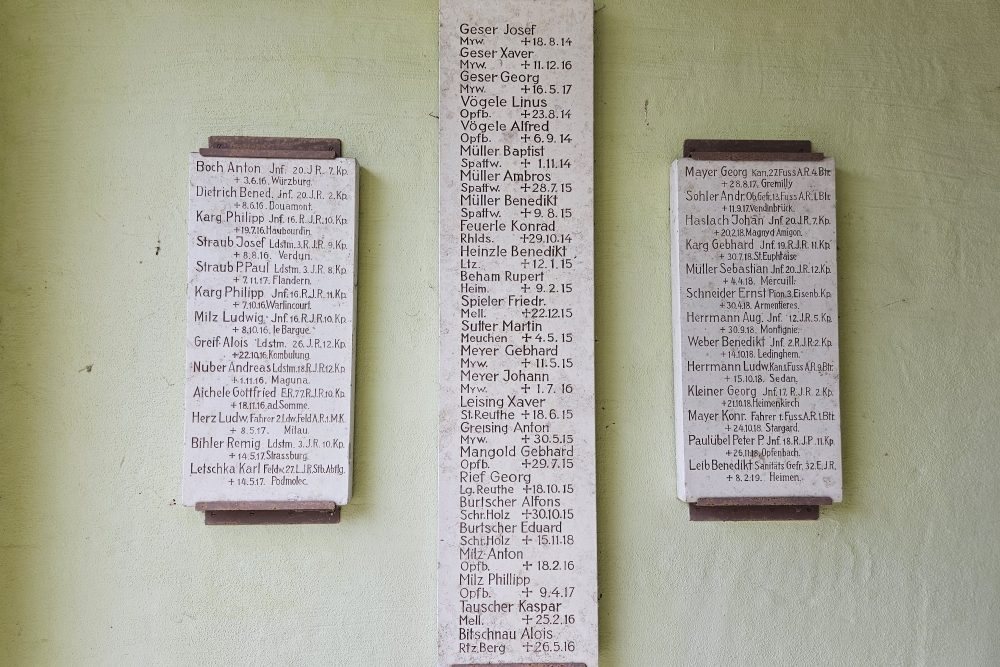 Boch Anton Jnf. 20.J.R. 7.Kp.
+ 3.6.16. Würzburg.
Dietrich Bened. Jnf. 20.J.R. 2.Kp.
+ 8.6.16. Douamont.
Karg Philipp Jnf. 16.R.J.R.10.Kp.
+19.7.16. Haubourdin.
Straub Josef Ldstm. 3.R.J.R. 9.Kp.
+ 8.8.16. Verdun.
Straub P.Paul Ldstm. 3.J.R. 8.Kp.
+ 7.11.17. Flandern.
Karg Philipp Jnf.16.R.J.R.11.Kp.
+ 7.10.16.Warlincourt.
Milz Ludwig Jnf.16.R.J.R.10.Kp.
+ 8.10.16. le Bargue.
Greif Alois Ldstm. 26.J.R.12.Kp.
+22.10.16.Kombulung.
Nuber Andreas Ldstm.18.R.J.R.12.Kp.
+1.11.16. Maguna.
Aichele Gottfried E.R.77.R.J.R.10.Kp.
+ 18.11.16. ad Somme.
Herz Ludw. Fahrer 2.Ldw.Feld A.R.1.M.K.
+ 8.5.17. Mitau.
Bihler Remig Ldstm. 3.J.R.10.Kp.
+14.5.17. Strassburg.
Letschka Karl Feldw. 27.L.J.R.Stb.Abtlg.
+ 14.5.17. Podmolec.
Geser Josef
Myw. +18.8.14
Geser Xaver
Myw. +11.12.16
Geser Georg
Myw. +16.5.17
Vögele Linus
Opfb. +23.8.14
Vögele Alfred
Opfb. + 6.9.14
Müller Baptist
Spattw. + 1.11.14
Müller Ambros
Spattw. +28.7.15
Müller Benedikt
Spattw. + 9.8.15
Feuerle Konrad
Rhlds. +29.10.14
Heinzle Benedikt
Ltz. + 12.1.15
Beham Rupert
Heim. + 9.2.15
Spieler Friedr.
Mell. +22.12.15
Sutter Martin
Meuchen + 4.5.15
Meyer Gebhard
Myw. + 11.5.15
Meyer Johann
Myw. + 1.7.16
Leising Xaver
St.Reuthe + 18.6.15
Greising Anton
Myw. + 30.5.15
Mangold Gebhard
Opfb. +29.7.15
Rief Georg
Lg.Reuthe +18.10.15
Burtscher Alfons
Schr.Holz +30.10.15
Burtscher Eduard
Schr.Holz + 15.11.18
Milz Anton
Opfb. + 18.2.16
Milz Phillipp
Opfb. + 9.4.17
Tauscher Kaspar
Mell. +25.2.16
Bitschnau Alois
Rtz.Berg +26.5.16
Mayer Georg Kan.27.Fuss A.R.4.Btr.
+28.8.17. Gremilly
Sohler Andr. Ob.Gefr.13.Fuss A.R.1.Btr.
+11.9.17.Vendinbrück.
Haslach Johan Jnf.20.J.R.7.Kp.
+20.2.18.Magnyd Amigon.
Karg Gebhard Jnf. 19.R.J.R.11.Kp.
+ 30.7.18.St.Euphtaise
Müller Sebastian Jnf.20.J.R.12.Kp.
+ 4.4.18. Mercuill.
Schneider Ernst Pion.3.Eisenb.Kp.
+30.4.18. Armentieres.
Herrmann Aug. Jnf. 12.J.R.5.Kp.
+30.9.18. Montignie.
Weber Benedikt Jnf. 2.R.J.R.2.Kp.
+14.10.18. Ledinghem.
Herrmann Ludw.Kan.1.Fuss A.R.9.Btr.
+ 15.10.18. Sedan.
Kleiner Georg Jnf.17. R.J.R. 2.Kp.
+21.10.18.Heimenkirch
Mayer Konr. Fahrer 1.Fuss.A.R.1.Btr.
+24.10.18. Stargard.
Paulübel Peter P. Jnf. 18.R.J.P. 11.Kp.
+26.11.18.Opfenbach.
Leib Benedikt Sanitäts Gefr. 32.E.J.R.
+ 8.2.19. Heimen.